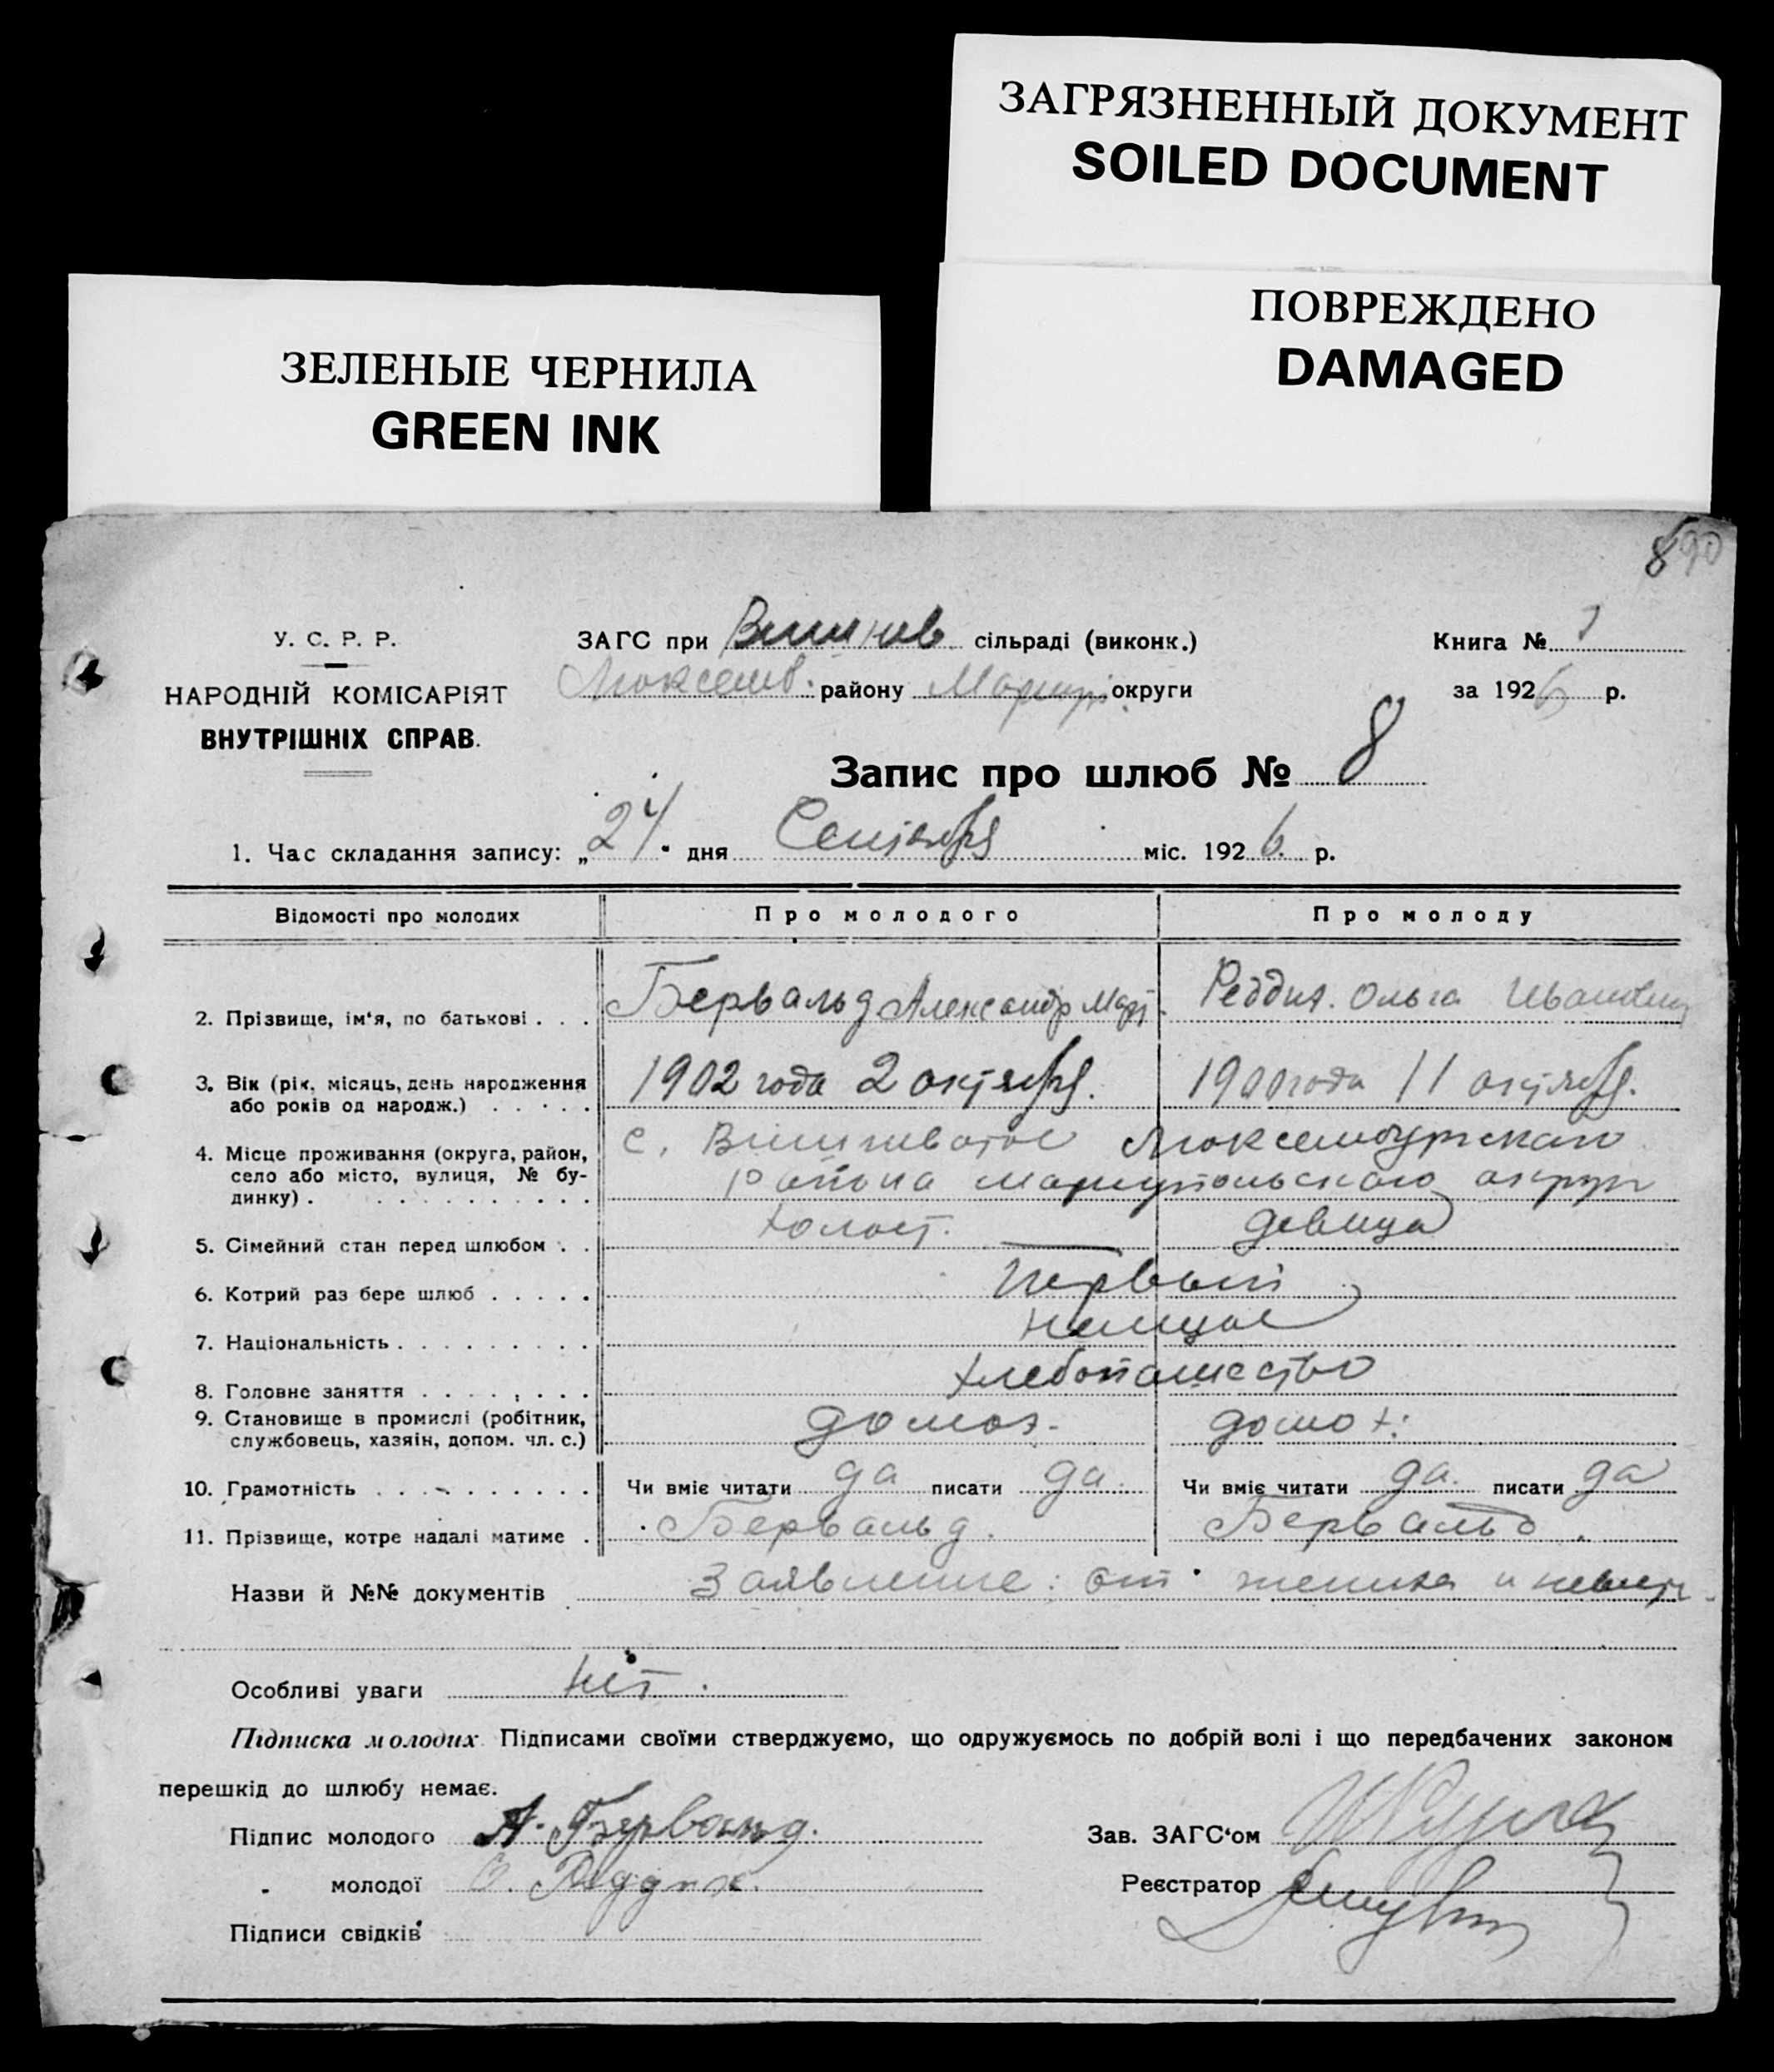 ЗАГРЯЗНЕННЫЙ ДОКУМЕНТ
SOILED DOCUMENT
ПОВРЕЖДЕНО
DAMAGED
ЗЕЛЕНЫЕ ЧЕРНИЛА
GREEN INK
890
У. С. Р. Р.
НАРОДНІЙ КОМІСАРІЯТ
ВНУТРІШНІХ СПРАВ.
ЗАГС при сільраді (виконк.)
Люксемб. району Маріуп. округи
Книга №
за 1926 р.
Запис про шлюб № 8
1. Час складання запису: „24" дня Сентября міс. 1926 р.
Відомості про молодих Про молодого Про молоду
2. Прізвище, ім'я, по батькові . . . Бервальд Александр Март. Реддих Ольга Ивановна
3. Вік (рік, місяць, день народження
або років од народж.) . . . . . 1902 года 2 октября. 1900 года 11 октября.
4. Місце проживання (округа, район, с. Люксембургскаго
село або місто, вулиця, № бу- района Мариупольского округи
динку) . . . . . . . . . .
5. Сімейний стан перед шлюбом . . холост. девица
6. Котрий раз бере шлюб . . . . . Первый
7. Національність . . . . . . . . . немцы
8. Головне заняття . . . . . . . . хлебопашество
9. Становище в промислі (робітник,
службовець, хазяін, допом. чл. с.) домох. домох.
10. Грамотність . . . . . . . . . . Чи вміє читати да писати да. Чи вміє читати да. писати да
11. Прізвище, котре надалі матиме . Бервальд. Бервальд.
Назви й №№ документів Заявление: от жениха и невесты
Особливі уваги нет.
Підписка молодих. Підписами своїми стверджуємо, що одружуємось по добрій волі і що передбачених законом
перешкід до шлюбу немає.
Підпис молодого А. Бервальд. Зав. ЗАГС'ом
" молодої О. Реддих. Реєстратор
Підписи свідків